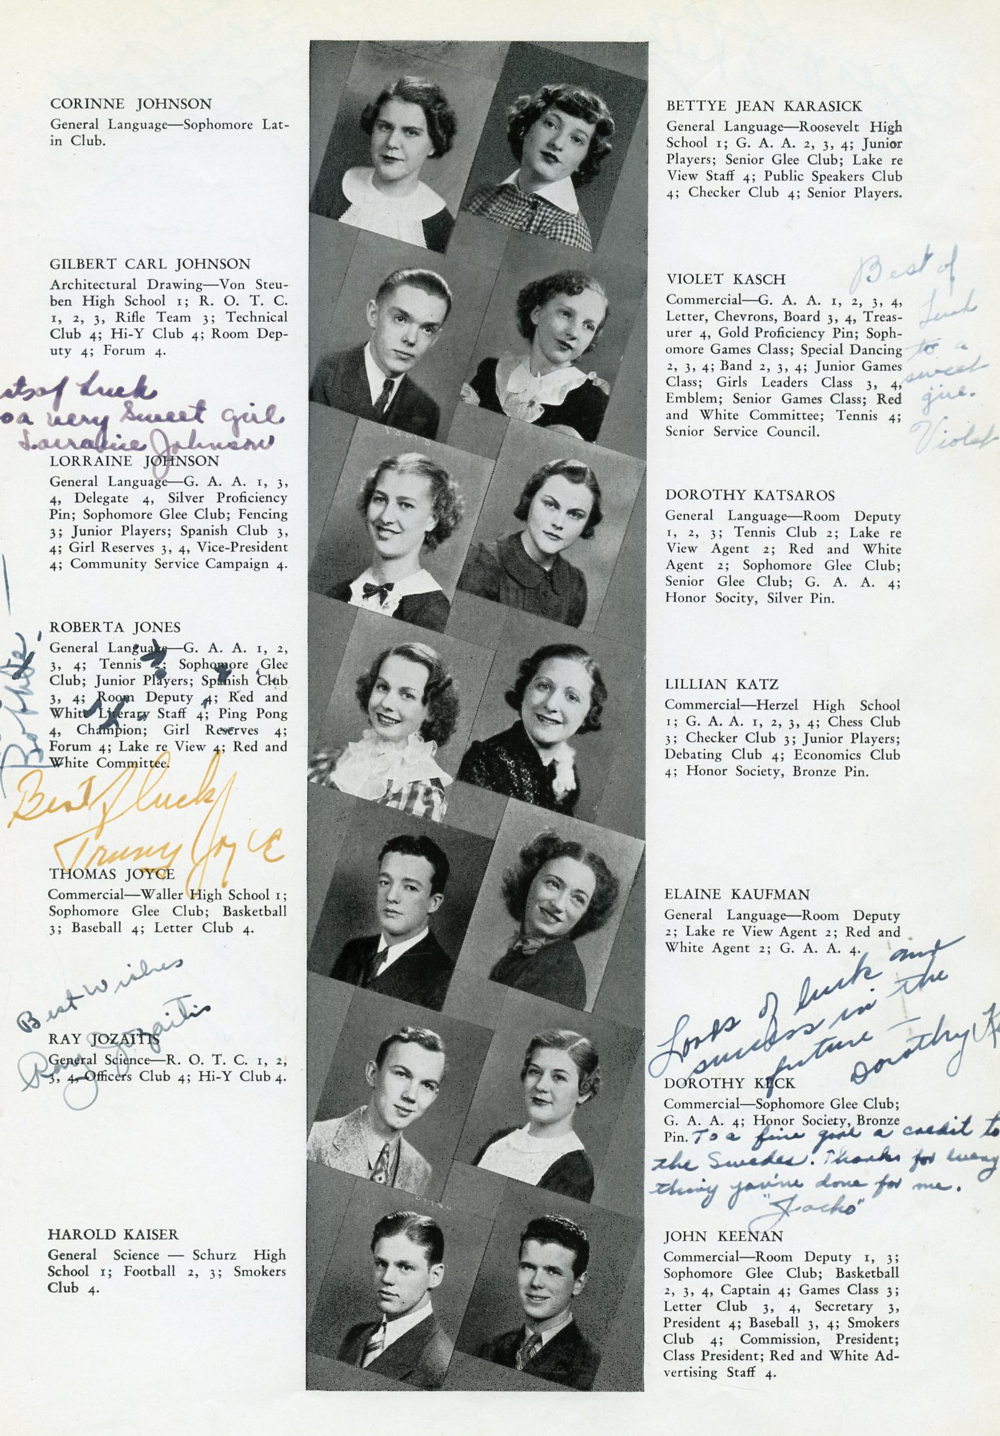 CORINNE JOHNSON
General Language—Sophomore Lat-
in Club.
GILBERT CARL JOHNSON
Architectural Drawing—Von Steu-
ben High School 1; R. O. T. C.
1, 2, 3, Rifle Team 3; Technical
Club 4; Hi-Y Club 4; Room Dep-
uty 4; Forum 4.
ts of Luck
o a very Sweet girl
Lorraine Johnson
LORRAINE JOHNSON
General Language—G. A. A. 1, 3,
4, Delegate 4, Silver Proficiency
Pin; Sophomore Glee Club; Fencing
3; Junior Players; Spanish Club 3,
4; Girl Reserves 3, 4, Vice-President
4; Community Service Campaign 4.
ROBERTA JONES
General Language—G. A. A. 1, 2,
3, 4; Tennis 2; Sophomore Glee
Club; Junior Players; Spanish Club
3, 4; Room Deputy 4; Red and
White Literary Staff 4; Ping Pong
4, Champion; Girl Reserves 4;
Forum 4; Lake re View 4; Red and
White Committee.
Best of luck
Joyce
THOMAS JOYCE
Commercial—Waller High School 1;
Sophomore Glee Club; Basketball
3; Baseball 4; Letter Club 4.
Best Wishes
Ray Jozaitis
RAY JOZAITIS
General Science—R. O. T. C. 1, 2,
3, 4, Officers Club 4; Hi-Y Club 4.
HAROLD KAISER
General Science — Schurz High
School 1; Football 2, 3; Smokers
Club 4.
BETTYE JEAN KARASICK
General Language—Roosevelt High
School 1; G. A. A. 2, 3, 4; Junior
Players; Senior Glee Club; Lake re
View Staff 4; Public Speakers Club
4; Checker Club 4; Senior Players.
Best of
Luck
to a
sweet
girl.
Violet
VIOLET KASCH
Commercial—G. A. A. 1, 2, 3, 4,
Letter, Chevrons, Board 3, 4, Treas-
urer 4, Gold Proficiency Pin; Soph-
omore Games Class; Special Dancing
2, 3, 4; Band 2, 3, 4; Junior Games
Class; Girls Leaders Class 3, 4,
Emblem; Senior Games Class; Red
and White Committee; Tennis 4;
Senior Service Council.
DOROTHY KATSAROS
General Language—Room Deputy
1, 2, 3; Tennis Club 2; Lake re
View Agent 2; Red and White
Agent 2; Sophomore Glee Club;
Senior Glee Club; G. A. A. 4;
Honor Socity, Silver Pin.
LILLIAN KATZ
Commercial—Herzel High School
1; G. A. A. 1, 2, 3, 4; Chess Club
3; Checker Club 3; Junior Players;
Debating Club 4; Economics Club
4; Honor Society, Bronze Pin.
ELAINE KAUFMAN
General Language—Room Deputy
2; Lake re View Agent 2; Red and
White Agent 2; G. A. A. 4.
Loads of luck and
success in the
future —
Dorothy K
DOROTHY KECK
Commercial—Sophomore Glee Club;
G. A. A. 4; Honor Society, Bronze
Pin.
To a fine girl a credit to
the Swedes. Thanks for every
thing you've done for me.
"Jacko"
JOHN KEENAN
Commercial—Room Deputy 1, 3;
Sophomore Glee Club; Basketball
2, 3, 4, Captain 4; Games Class 3;
Letter Club 3, 4, Secretary 3,
President 4; Baseball 3, 4; Smokers
Club 4; Commission, President;
Class President; Red and White Ad-
vertising Staff 4.